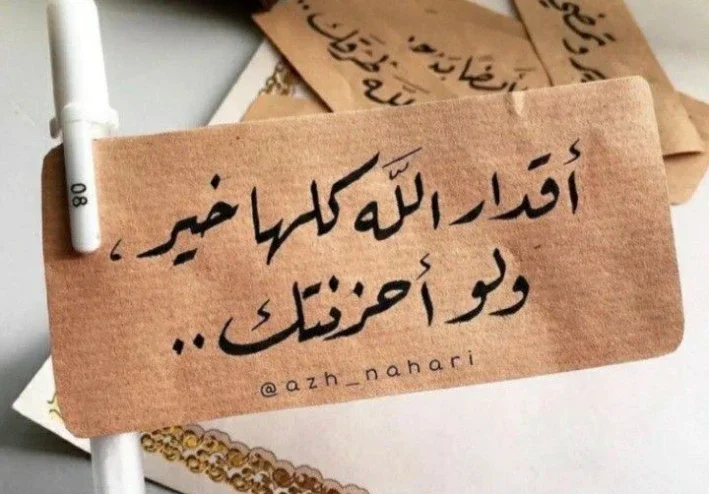 أقدار الله كلها خير ،
ولو أحزنتك ..
@azh_nahari
08